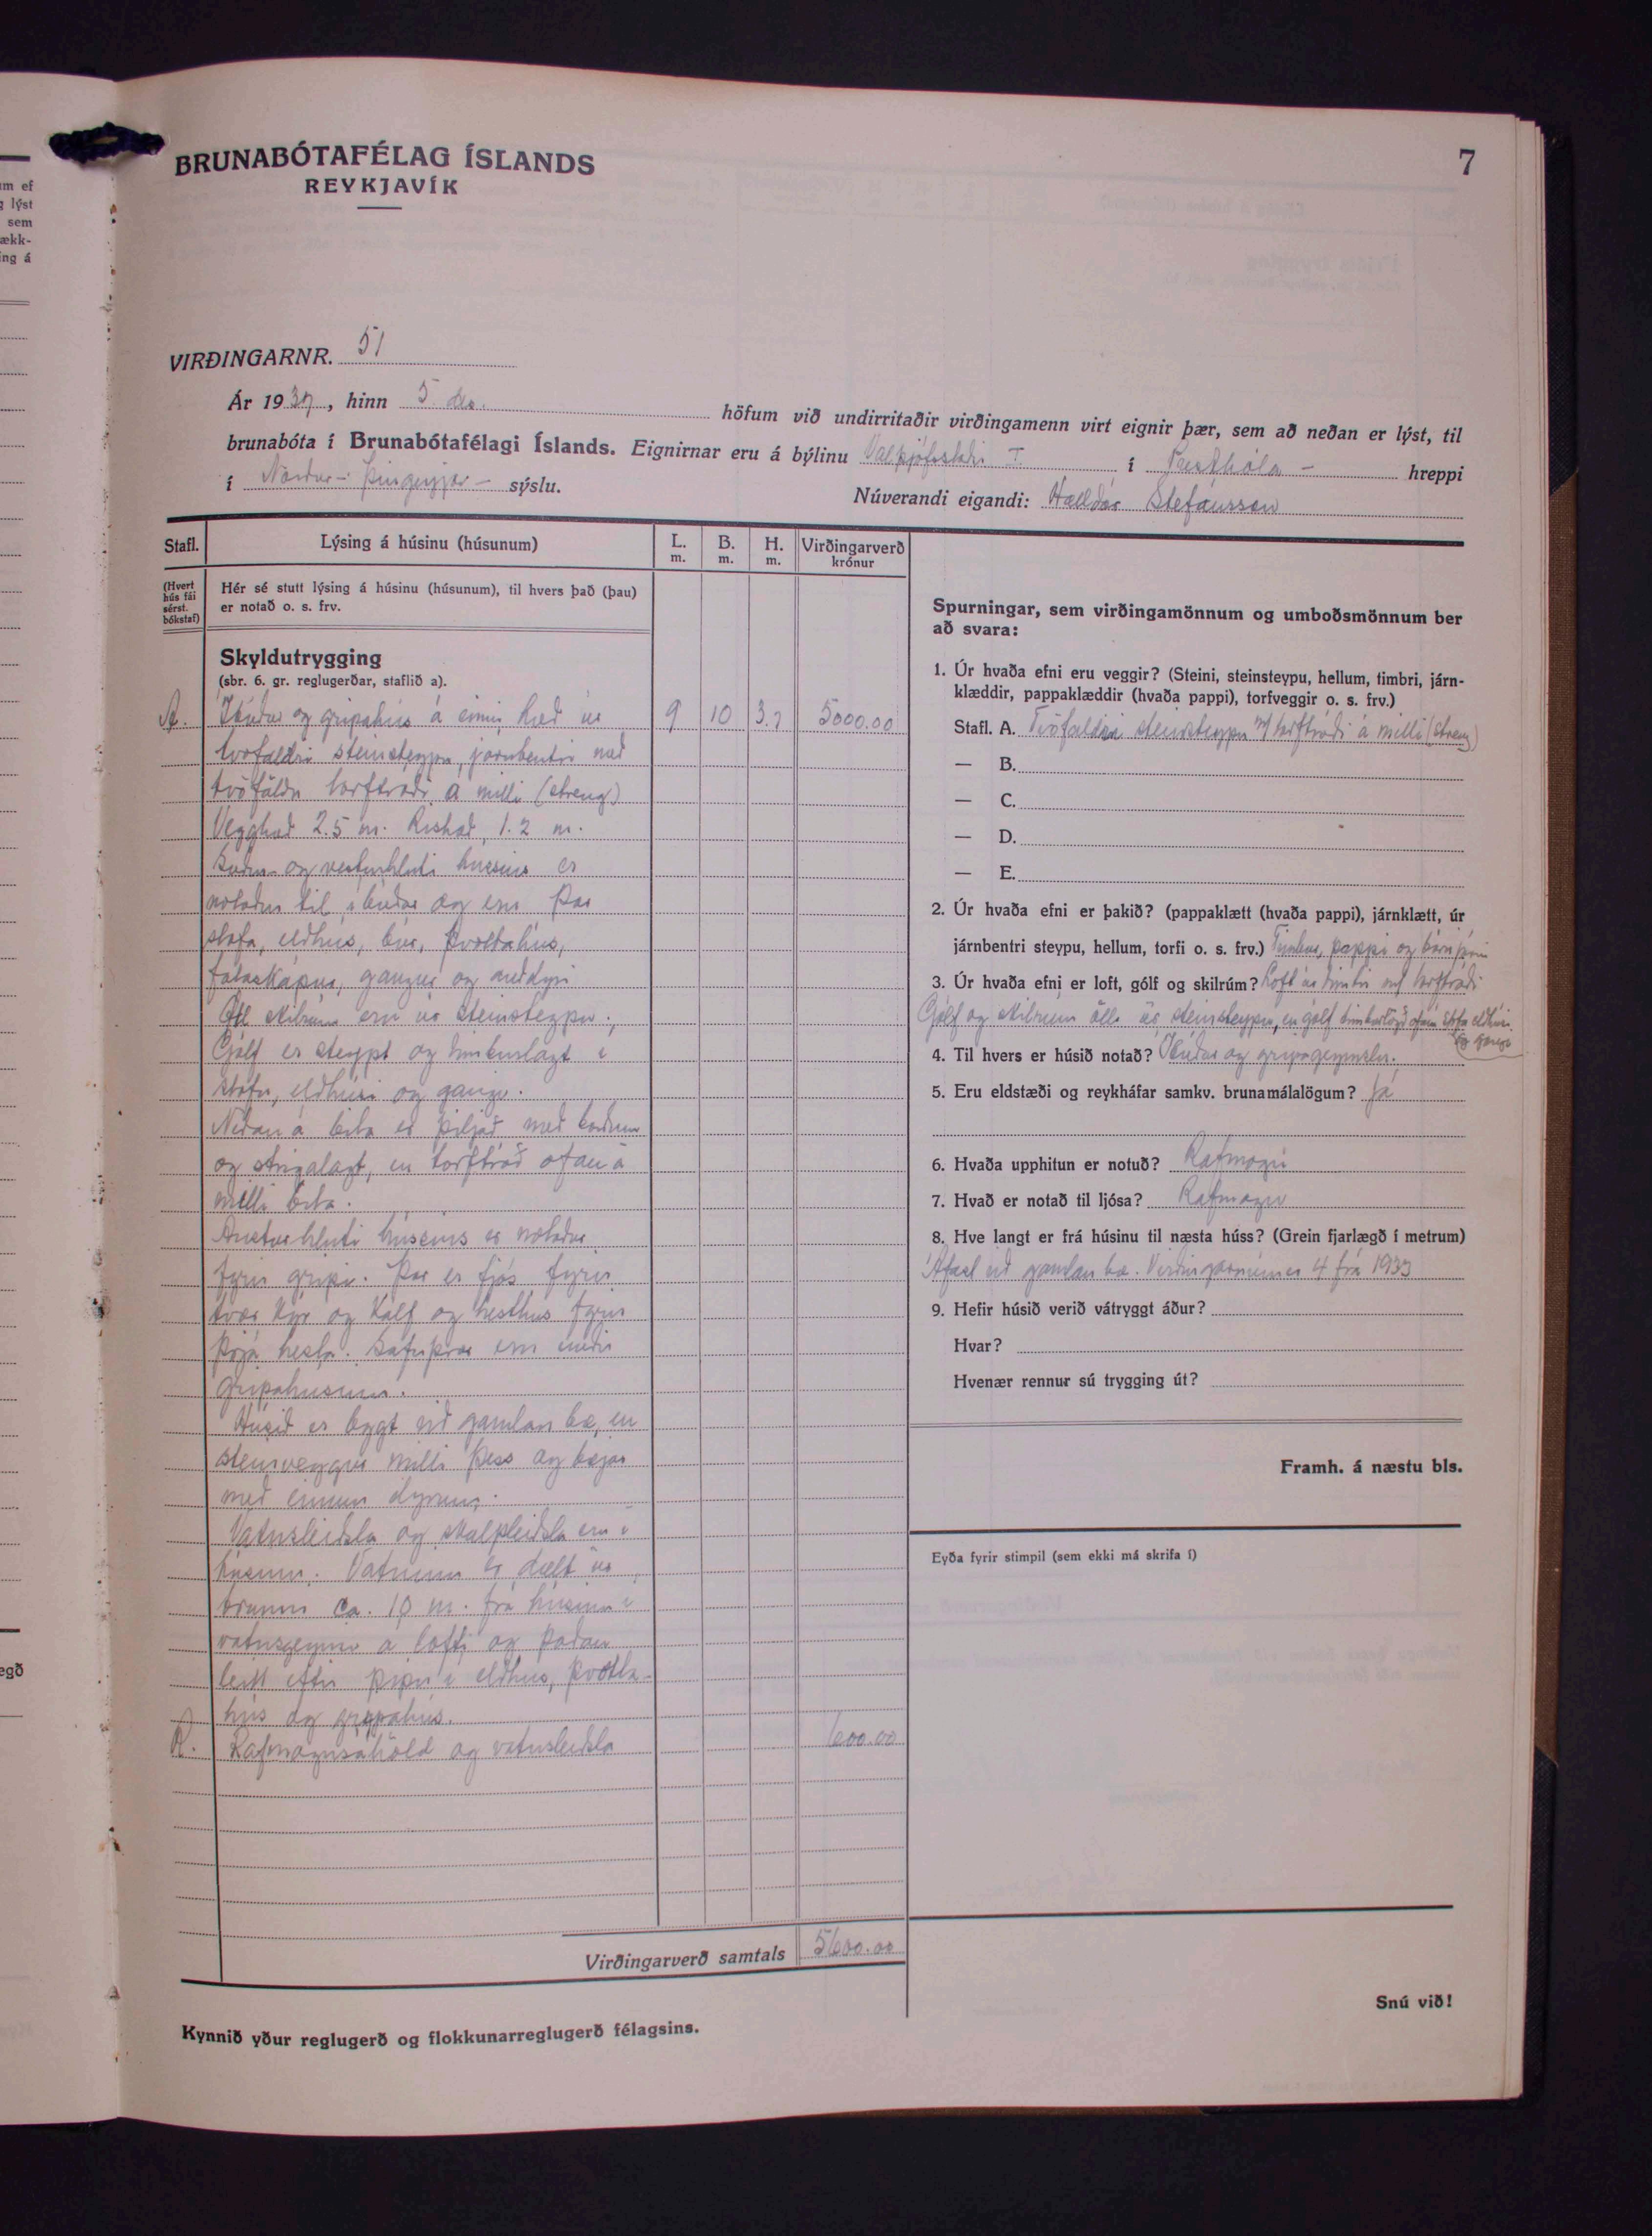 um ef
g lýst
sem
ækk-
ing á
egð
7
BRUNABÓTAFÉLAG ÍSLANDS
REYKJAVÍK
VIRÐINGARNR. 51
Ár 1937, hinn 5. des. höfum við undirritaðir virðingamenn virt eignir þær, sem að neðan er lýst, til
brunabóta í Brunabótafélagi Íslands. Eignirnar eru á býlinu Valþjófsstaðir I í Presthóla - hreppi
í Norður-Þingeyjar- sýslu. Núverandi eigandi: Halldór Stefánsson
Stafl. Lýsing á húsinu (húsunum) L. m. B. m. H. m. Virðingarverð krónur
(Hvert hús fái sérst. bókstaf)
Hér sé stutt lýsing á húsinu (húsunum), til hvers það (þau)
er notað o. s. frv.
Skyldutrygging
(sbr. 6. gr. reglugerðar, staflið a).
A. Íbúðar og gripahús á einni hæð úr 9 10 3.7 5000.00
tvöfaldri steinsteypu, járnbentri með
tvöföldu torftróði á milli (streng)
Vegghæð 2.5 m. Rishæð 1.2 m.
Suður og vesturhluti hússins er
notaður til íbúðar og eru þar
stofa, eldhús, búr, þvottahús,
fataskápur, gangur og anddyri
Öll skilrúm eru úr steinsteypu.
Gólf er steypt og timburlagt í
stofu, eldhúsi og gangi.
Neðan á bita er þiljað með borðum
og strigalagt, en torftróð ofan á
milli bita.
Austurhluti hússins er notaður
fyrir gripi. Þar er fjós fyrir
tvær kýr og kálf og hesthús fyrir
þrjá hesta. Safnþrær eru undir
gripahúsum.
Húsið er byggt við gamlan bæ, en
steinveggur milli þess og bæjar
með einum dyrum.
Vatnsleiðsla og skolpleiðsla eru í
húsinu. Vatninu er dælt úr
brunni ca. 10 m. frá húsinu í
vatnsgeymi á lofti og þaðan
leitt eftir pípu í eldhús, þvotta-
hús og gripahús.
R. Rafmagnsáhöld og vatnsleiðsla 600.00
Virðingarverð samtals 5600.00
Kynnið yður reglugerð og flokkunarreglugerð félagsins.
Spurningar, sem virðingamönnum og umboðsmönnum ber
að svara:
1. Úr hvaða efni eru veggir? (Steini, steinsteypu, hellum, timbri, járn-
klæddir, pappaklæddir (hvaða pappi), torfveggir o. s. frv.)
Stafl. A. Tvöfaldri steinsteypu m/ torftróði á milli (streng)
— B.
— C.
— D.
— E.
2. Úr hvaða efni er þakið? (pappaklætt (hvaða pappi), járnklætt, úr
járnbentri steypu, hellum, torfi o. s. frv.) Timbur, pappi og bárujárn
3. Úr hvaða efni er loft, gólf og skilrúm? Loft úr timbri með torftróði
Gólf og skilrúm öll úr steinsteypu, en gólf timburlögð ofan í stofu eldhúsi
og gangi
4. Til hvers er húsið notað? Íbúðar og gripageymslu.
5. Eru eldstæði og reykháfar samkv. brunamálalögum? Já
6. Hvaða upphitun er notuð? Rafmagn
7. Hvað er notað til ljósa? Rafmagn
8. Hve langt er frá húsinu til næsta húss? (Grein fjarlægð í metrum)
Áfast við gamlan bæ. Virðingarnúmer 4 frá 1933
9. Hefir húsið verið vátryggt áður?
Hvar?
Hvenær rennur sú trygging út?
Framh. á næstu bls.
Eyða fyrir stimpil (sem ekki má skrifa í)
Snú við!